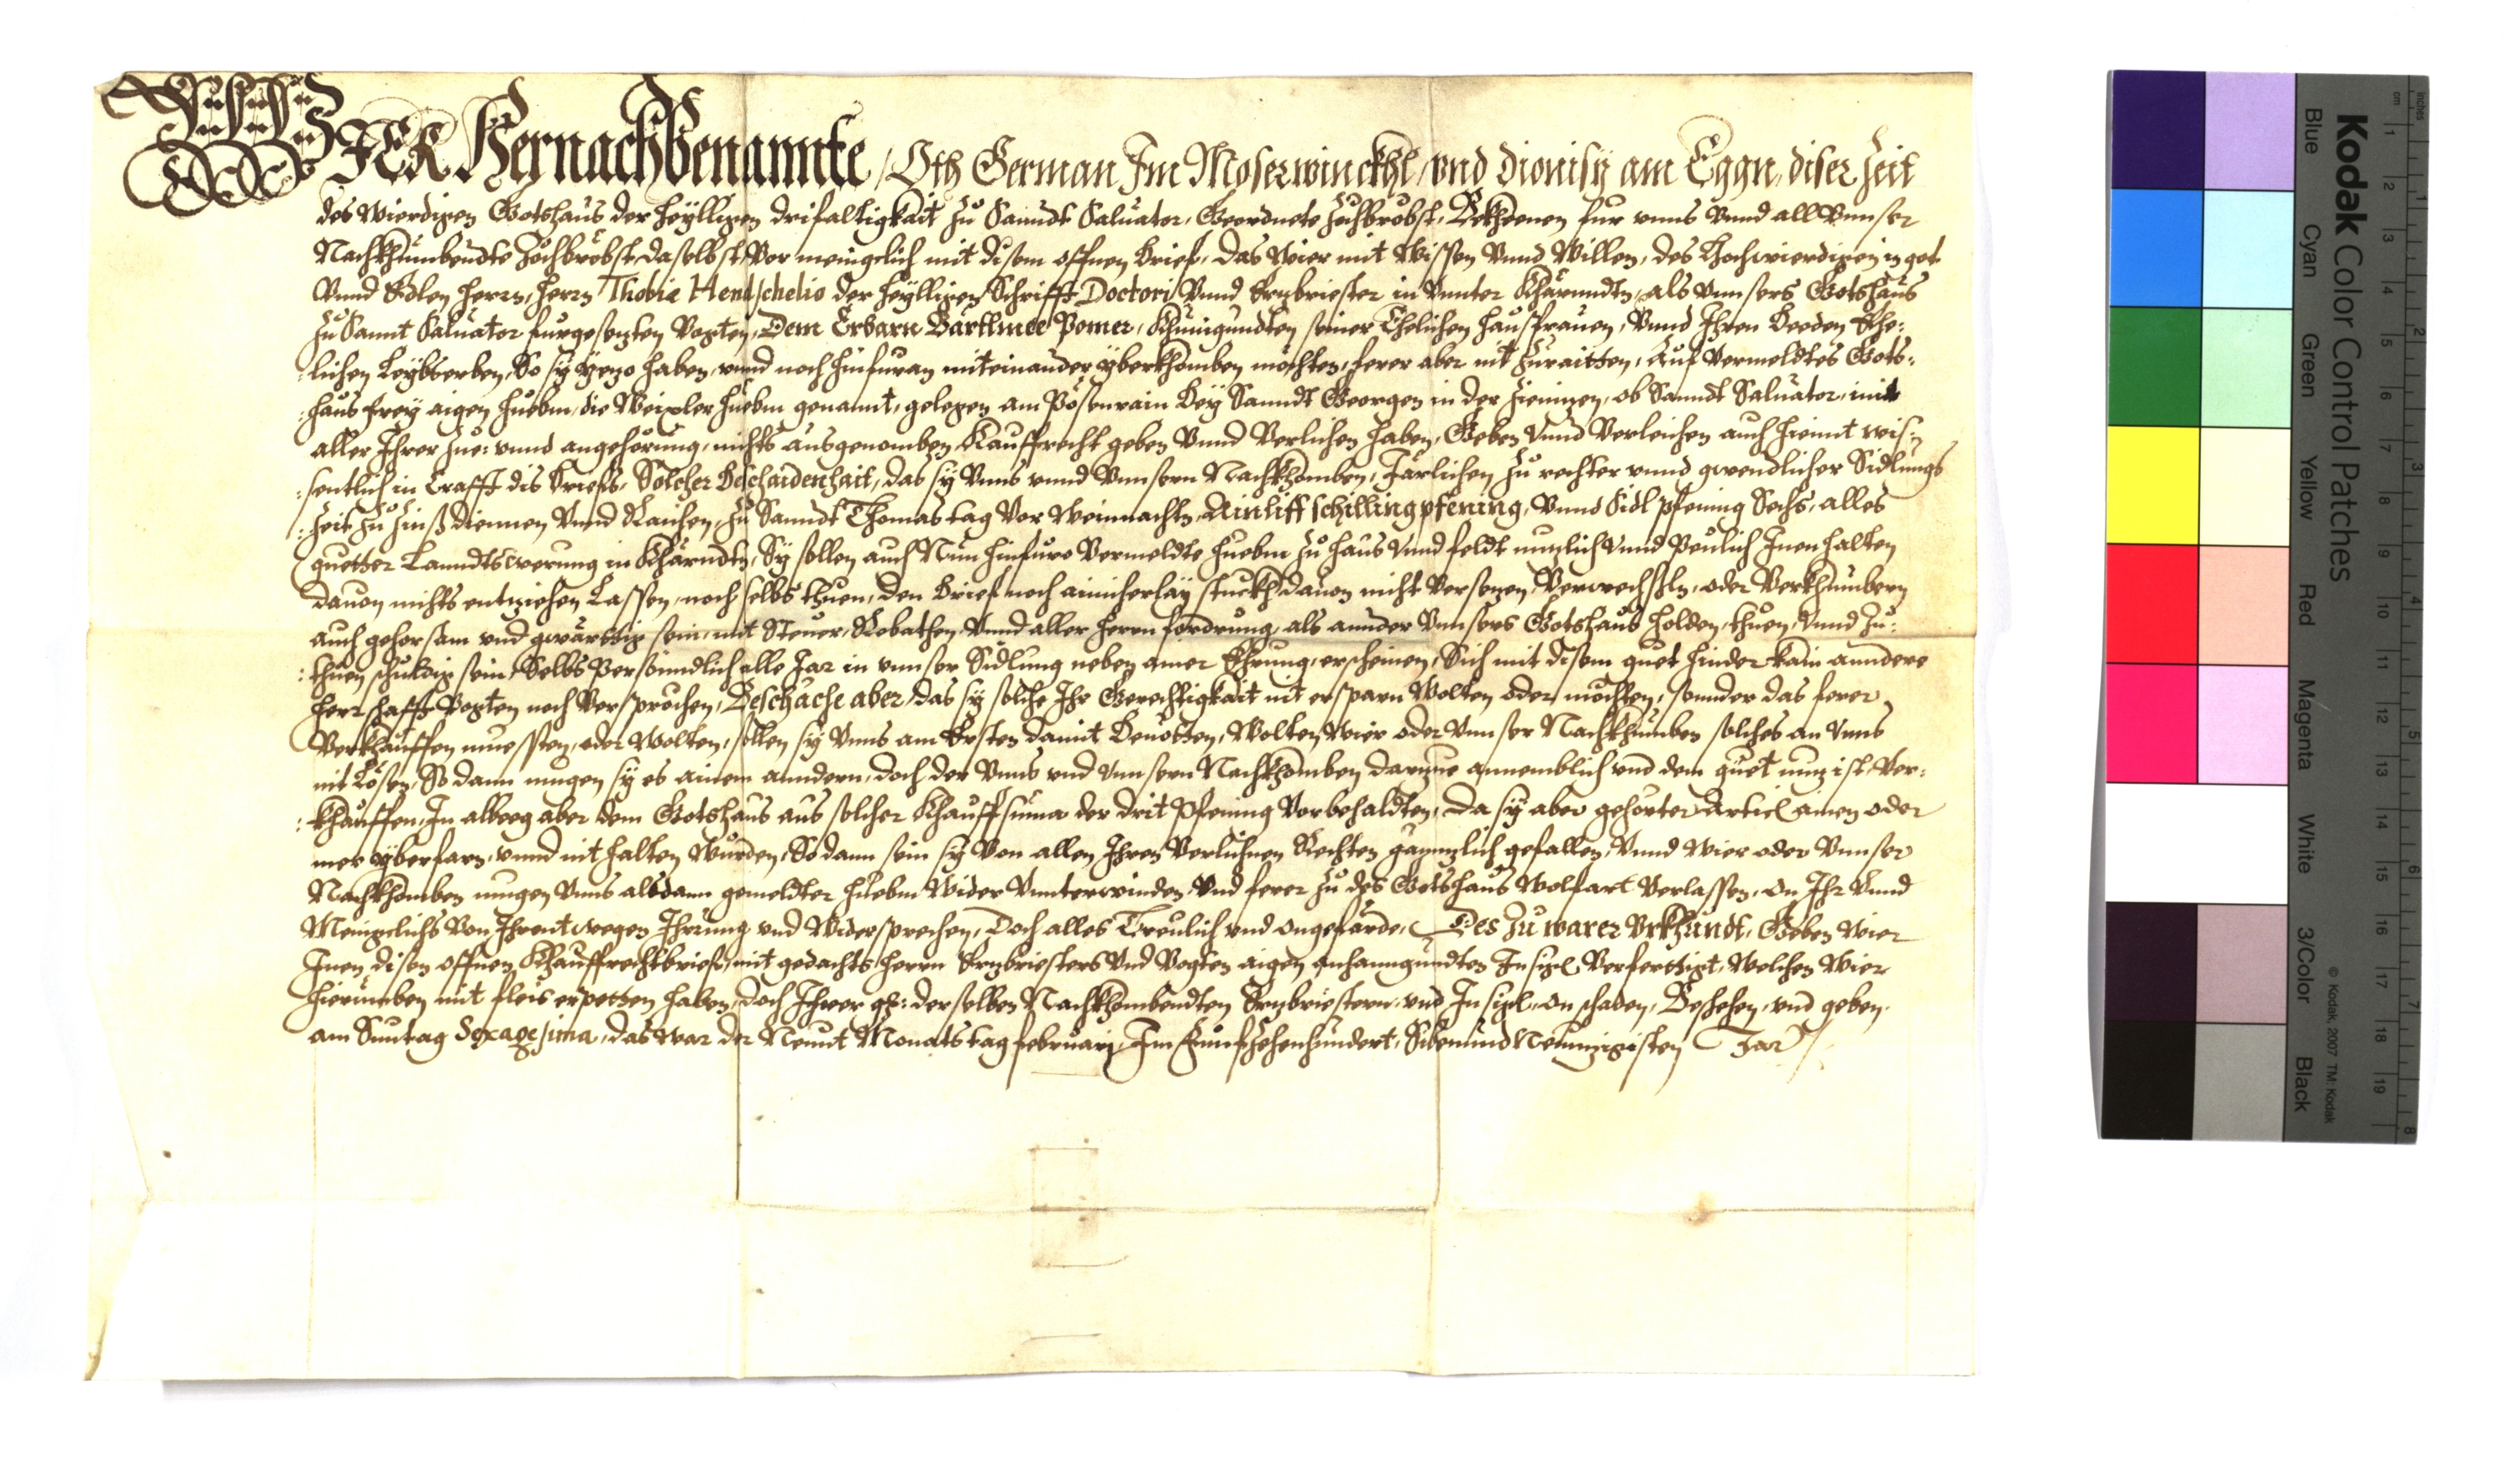 WIER Hernachbenannte, Oth German Im Moserwinckhl, vnd Dionisy am Eggn, diser Zeit
des Wierdigen Gotshaus der heylligen drifaltigkait zu Sanndt Saluator, Geordnete Zöchbröbst, Bekhennen fur vnns Vnnd all Vnnser
Nachkhumbendte Zöchbröbst daselbst, Vor meingclich mit disem offnen Brief, das Wier mit Wissen Vnnd Willen, des Hochwierdigen in got
Vnnd Edlen Herrn, Herrn Thobiæ Hendschelio der heylligen Schrifft Doctori Vnnd Erzbriester in Vnnter Khärnndtn, als Vnnsers Gotshaus
zu Sannt Saluator furgesezten Vogten, Dem Erbarn Bärtlmee Pomer, Khunigundten seiner Ehelichen Hausfrauen, Vnnd Ihren Beeden Ehe:
:lichen Leybserben, So sy yezo haben, vnnd noch hinfuran miteinander yberkhomben möchten, ferer aber nit zuraitten, Auf Vermeldtes Gots:
:haus frey aigen Huebm, die Weixler Huebm genannt, gelegen am Pösenrain Bey Sanndt Georgen in der Zieningen, ob Sanndt Saluator, mit
aller Ihrer Zue: vnnd angehörung, nichts ausgenomben Kauffrecht geben Vnnd Verlichen haben, Geben Vnnd Verleichen auch hiemit wis:
:sentlich in Crafft dis Briefs, Solcher Beschaidenhait, das sy Vnns vnnd Vnnsern Nachkhomben, Järlichen zu rechter vnnd gwendlicher Sidlungs
:Zeit zu Zinß diennen Vnnd Raichen, zu Sanndt Thomas tag Vor Weinnachtn, Ainliff schilling pfening, Vnnd Sidl pfening Sechs, alles
guetter Lanndtswerung in Khärndtn, Sy sollen auch Nun hinfuro Vermeldte Huebm zu Haus Vnnd feldt nuzlich Vnnd Peulich Innenhalten
dauon nichts entziehen Lassen, noch selbs thuen, den Brief noch ainicherlay stuckh dauon nicht Versezen, Verwechsln, oder Verkhumbern
auch gehorsam vnd gwärttig sein, mit Steuer, Robathen Vnnd aller Herrn fordrung, als annder Vnnsers Gotshaus Holden, thuen, Vnnd zu:
:thuen schuldig sein, Selbs Persönndlich alle Jar in vnnser Sidlung neben ainer Ehrung, erscheinen, Sich mit disem guet hinder kain anndere
Herrschafft Vogten noch Versprochen, Beschache aber, das sy solche Ihr Gerechtigkait nit ersparn Wolten oder möchten, sonnder das ferer
Verkhauffen muessten, oder Wolten, sollen sy Vnns am Ersten damit Benötten, Wolten Wier oder Vnnser Nachkhumben solches an Vnns
nit Lösen, So dann mugen sy es ainem anndern, doch der Vnns vnd Vnnsern Nachkhomben darzue annemblich vnd dem guet nuz ist, Ver:
:khauffen, In albeeg aber dem Gotshaus aus solcher Khauffsuma der drit Pfening Vorbehaldten, Da sy aber gehörter Articl ainen oder
mer yberfarn, vnnd nit halten Wurden, So dann sein sy Von allen Ihren Verlichnen Rechten gännzlich gefallen, Vnnd Wier oder Vnnser
Nachkhomben mugen Vnns alsdann gemeldter Huebm Wider Vnnterwinden, Vnd ferer zu des Gotshaus Wolfart Verlassen, on Ihr Vnnd
Meingclichs Von Ihrentwegen Ihrrung vnd Widersprechen, Doch alles Treulich vnd ongefärde, Des zu warer Vrkhundt, Geben Wier
Inen disen offnen Khauffrechtbrief, mit gedachts Herrn Erzbriesters Vnd Vogten aigen anhanngundten Insigl Verferttigt, Welchen Wier
hierumben mit fleis erpetten haben, doch Ihrer gst: derselben Nachkhombendten Erzbriestern, vnd Insigl, on schaden, Beschehen, vnd geben
am Suntag Sexagesima, das war der Neunt Monats tag februarj Im Funfzehenhundert, Sibenundneunzigisten Jar
Kodak Color Control Patches
Blue Cyan Green Yellow Red Magenta White 3/Color Black
© Kodak, 2007 TM: Kodak
inches 1 2 3 4 5 6 7 8
cm 1 2 3 4 5 6 7 8 9 10 11 12 13 14 15 16 17 18 19